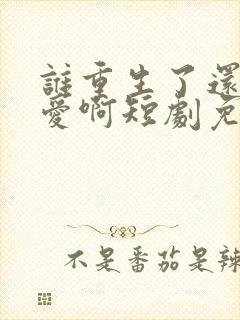 誰重生了還
愛啊短劇免
不是番茄是辣